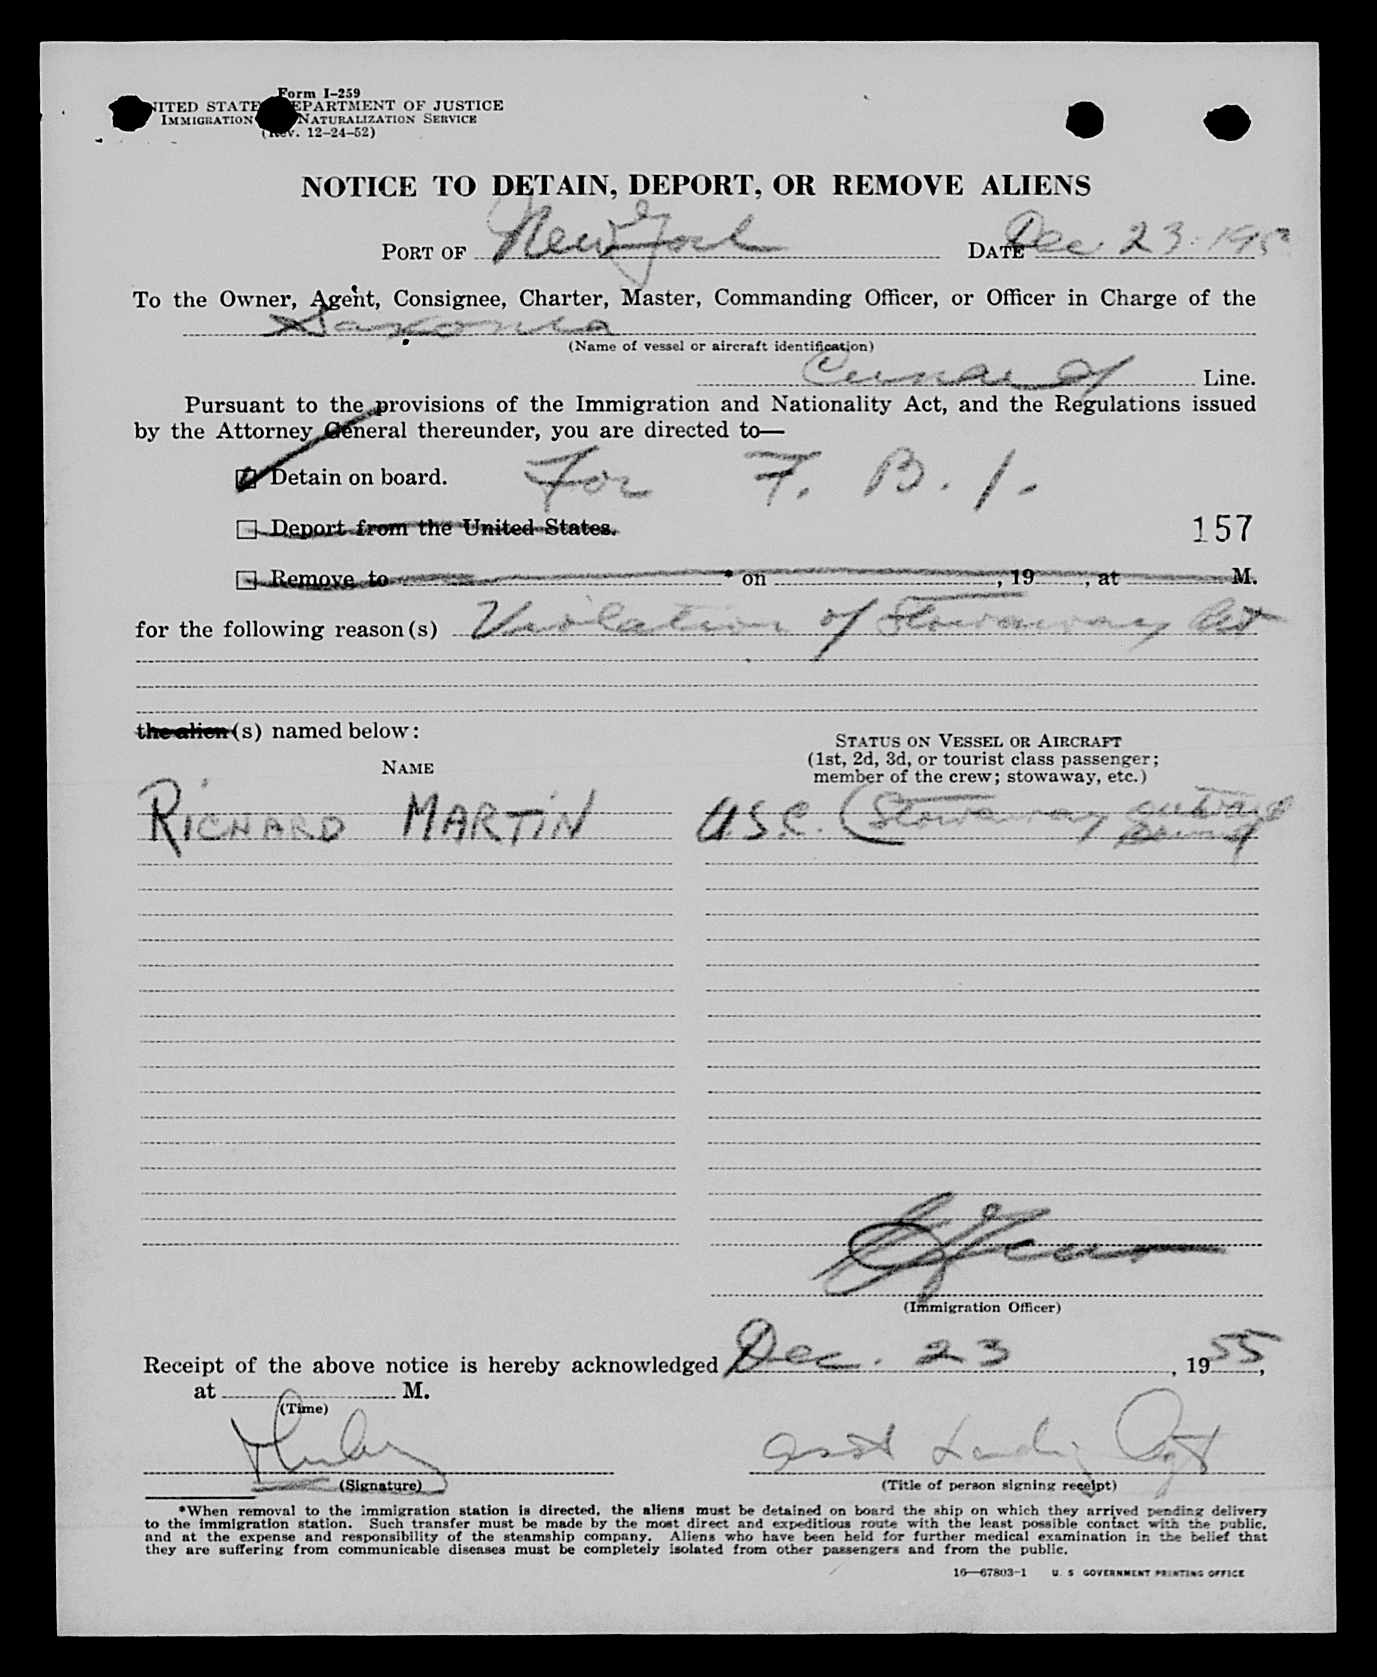 Form I-259
UNITED STATES DEPARTMENT OF JUSTICE
IMMIGRATION AND NATURALIZATION SERVICE
(Rev. 12-24-52)
NOTICE TO DETAIN, DEPORT, OR REMOVE ALIENS
PORT OF New York DATE Dec 23. 195
To the Owner, Agent, Consignee, Charter, Master, Commanding Officer, or Officer in Charge of the
Saxonia
(Name of vessel or aircraft identification)
Cunard Line.
Pursuant to the provisions of the Immigration and Nationality Act, and the Regulations issued
by the Attorney General thereunder, you are directed to—
Detain on board. For F. B. I.
Deport from the United States.
157
Remove to * on , 19 , at M.
for the following reason(s) Violation of Stowaway Act
the alien(s) named below:
NAME
STATUS ON VESSEL OR AIRCRAFT
(1st, 2d, 3d, or tourist class passenger;
member of the crew; stowaway, etc.)
RICHARD MARTIN U.S.C. (Stowaway outward
bound)
(Immigration Officer)
Receipt of the above notice is hereby acknowledged Dec. 23, 1955,
at M.
(Time)
Asst Landing Agt
(Signature) (Title of person signing receipt)
*When removal to the immigration station is directed, the aliens must be detained on board the ship on which they arrived pending delivery
to the immigration station. Such transfer must be made by the most direct and expeditious route with the least possible contact with the public,
and at the expense and responsibility of the steamship company. Aliens who have been held for further medical examination in the belief that
they are suffering from communicable diseases must be completely isolated from other passengers and from the public.
16—67803-1 U. S. GOVERNMENT PRINTING OFFICE